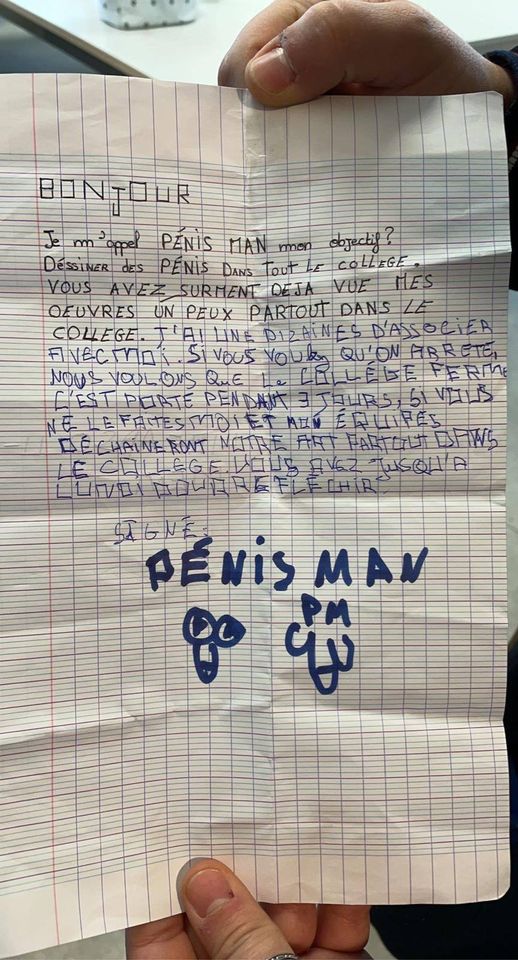 BONJOUR
Je m'appel PÉNIS MAN mon objectif?
DÉSSINER DES PÉNIS DANS TOUT LE COLLEGE.
VOUS AVEZ SURMENT DÉJA VUE MES
OEUVRES UN PEUX PARTOUT DANS LE
COLLEGE. J'AI UNE DIZAINES D'ASSOCIER
AVEC MOI. SI VOUS VOULEZ QU'ON ARRETE,
NOUS VOULONS QUE LE COLLÉGE FERME
C'EST PORTE PENDANT 3 JOURS, SI VOUS
NE LE FAITES MOI ET MON ÉQUIPES
DÉCHAINERONT NOTRE ART PARTOUT DANS
LE COLLÉGE. VOUS AVEZ JUSQU'A
LUNDI POUR REFLÉCHIR.
SIGNÉ:
PÉNIS MAN
PM